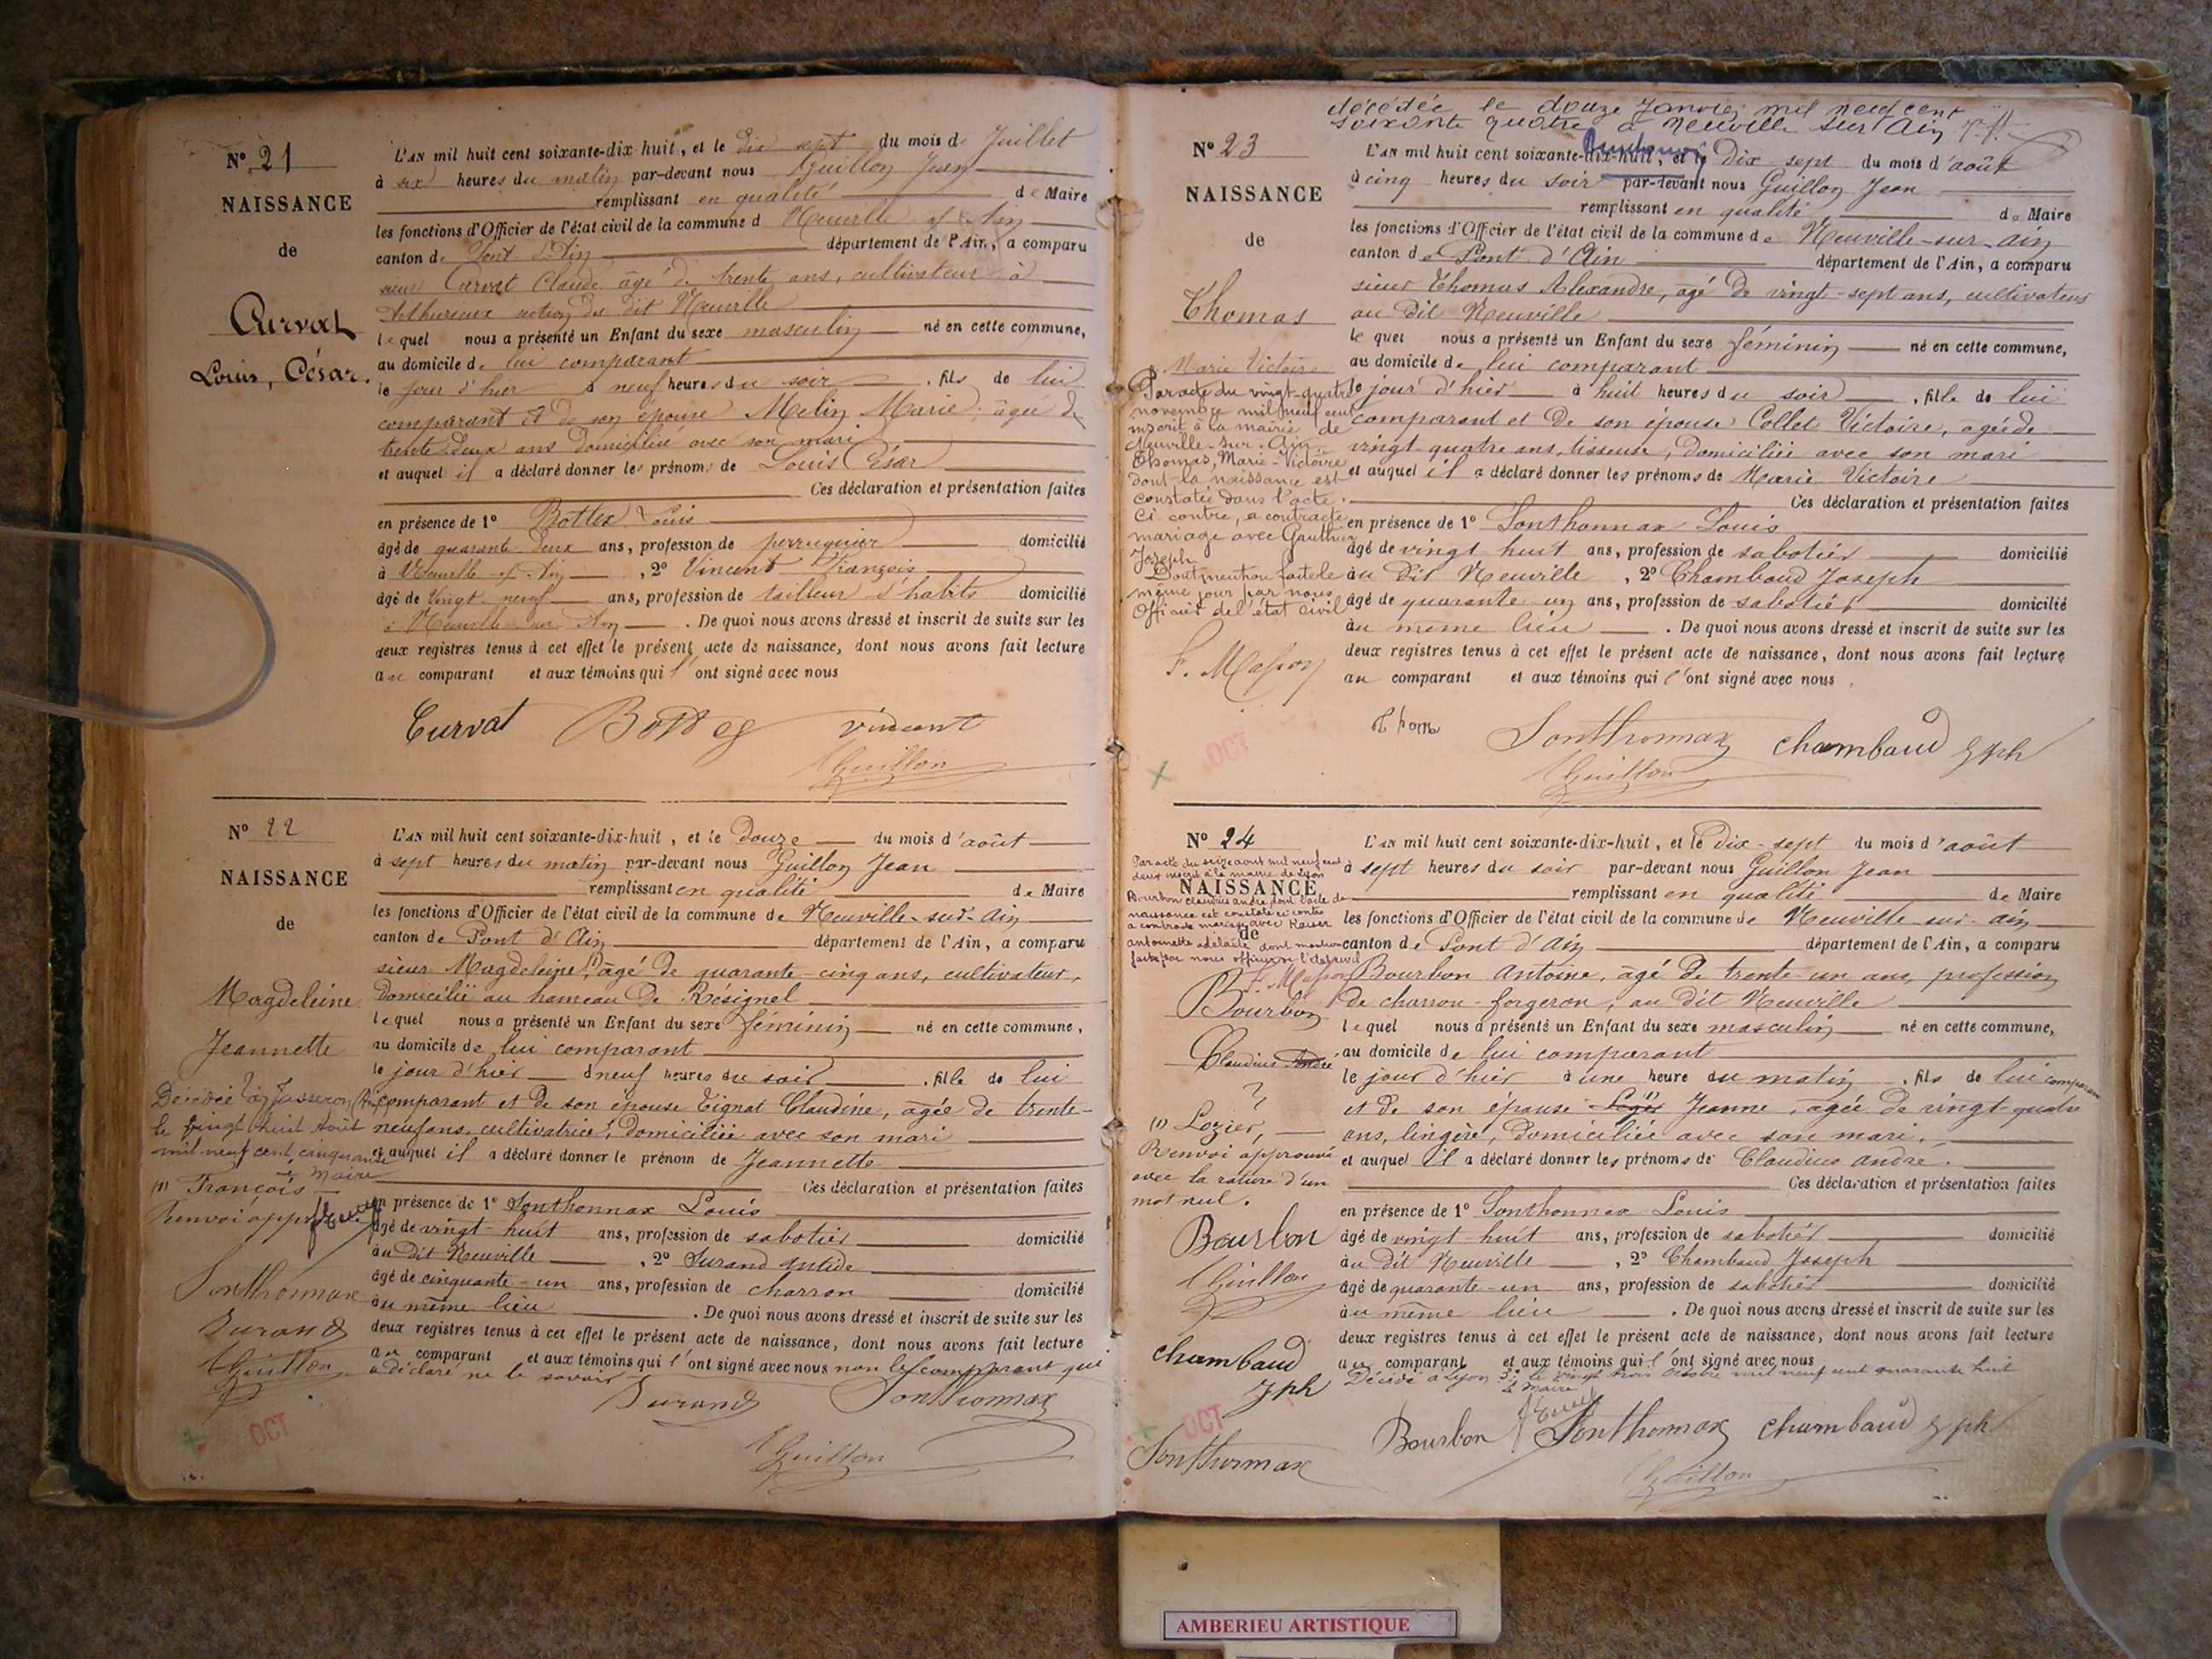 N° 21
NAISSANCE
de
Curvat
Louis, César.
L'AN mil huit cent soixante-dix-huit, et le dix sept du mois de Juillet
à six heures du matin par-devant nous Guillon Jean
remplissant en qualité de Maire
les fonctions d'Officier de l'état civil de la commune d Neuville s/ Ain
canton de Pont d'Ain département de l'Ain, a comparu
sieur Curvat Claude âgé de trente ans, cultivateur à
du dit Neuville
lequel nous a présenté un Enfant du sexe masculin né en cette commune,
au domicile de lui comparant
le jour d'hier à neuf heures du soir, fils de lui
comparant et de son épouse Melin Marie, âgée de
trente deux ans domiciliée avec son mari
et auquel il a déclaré donner les prénoms de Louis César
Ces déclaration et présentation faites
en présence de 1° Bottex Louis
âgé de quarante deux ans, profession de perruquier domicilié
à Neuville s/ Ain, 2° Vincent François
âgé de vingt-neuf ans, profession de tailleur d'habits domicilié
à Neuville sur Ain. De quoi nous avons dressé et inscrit de suite sur les
deux registres tenus à cet effet le présent acte de naissance, dont nous avons fait lecture
au comparant et aux témoins qui l'ont signé avec nous
Curvat Bottex Vincent
Guillon
N° 22
NAISSANCE
de
Magdeleine
Jeannette
Décédée à Jasseron
le vingt huit Août
mil neuf cent cinquante
le Maire
(1) François
Renvoi approuvé
Sonthonnax
Durand
Guillon
OCT
L'AN mil huit cent soixante-dix-huit, et le Douze du mois d'août
à sept heures du matin par-devant nous Guillon Jean
remplissant en qualité de Maire
les fonctions d'Officier de l'état civil de la commune de Neuville-sur-Ain
canton de Pont d'Ain département de l'Ain, a comparu
sieur Magdeleine (1), âgé de quarante-cinq ans, cultivateur,
Domicilié au hameau de Résignel
lequel nous a présenté un Enfant du sexe féminin né en cette commune,
au domicile de lui comparant
le jour d'hier à neuf heures du soir, fille de lui
comparant et de son épouse Tignat Claudine, agée de trente-
neuf ans, cultivatrice, Domiciliée avec son mari
et auquel il a déclaré donner le prénom de Jeannette
Ces déclaration et présentation faites
en présence de 1° Sonthonnax Louis
âgé de vingt-huit ans, profession de sabotier domicilié
au dit Neuville, 2° Durand
âgé de cinquante-un ans, profession de charron domicilié
au même lieu. De quoi nous avons dressé et inscrit de suite sur les
deux registres tenus à cet effet le présent acte de naissance, dont nous avons fait lecture
au comparant et aux témoins qui l'ont signé avec nous non le comparant qui
a déclaré ne le savoir
Durand Sonthonnax
Guillon
décédée le douze Janvier mil neuf cent
soixante quatre à Neuville sur Ain
N° 23
NAISSANCE
de
Thomas
Marie Victoire
Par acte du vingt-quatre
novembre mil neuf cent
inscrit à la mairie de
Neuville-sur-Ain
Thomas, Marie-Victoire
dont la naissance est
constatée dans l'acte
ci contre, a contracté
mariage avec Gauthier
Joseph
Dont mention faite le
même jour par nous
Officier de l'état civil
OCT
L'AN mil huit cent soixante-dix-huit, et le Dix sept du mois d'août
à cinq heures du soir par-devant nous Guillon Jean
remplissant en qualité de Maire
les fonctions d'Officier de l'état civil de la commune de Neuville-sur-Ain
canton de Pont d'Ain département de l'Ain, a comparu
sieur Thomas Alexandre, agé de vingt-sept ans, cultivateur
au dit Neuville
lequel nous a présenté un Enfant du sexe féminin né en cette commune,
au domicile de lui comparant
le jour d'hier à huit heures du soir, fille de lui
comparant et de son épouse Collet Victoire, agée de
vingt quatre ans, tisseuse, Domiciliée avec son mari
et auquel il a déclaré donner les prénoms de Marie Victoire
Ces déclaration et présentation faites
en présence de 1° Sonthonnax Louis
âgé de vingt huit ans, profession de sabotier domicilié
au dit Neuville, 2° Chambaud Joseph
âgé de quarante un ans, profession de sabotier domicilié
au même lieu. De quoi nous avons dressé et inscrit de suite sur les
deux registres tenus à cet effet le présent acte de naissance, dont nous avons fait lecture
au comparant et aux témoins qui l'ont signé avec nous
Thomas Sonthonnax Chambaud Jph
Guillon
N° 24
Par acte du seize aout mil neuf cent
deux inscrit à la mairie de Lyon
NAISSANCE
Bourbon claudius andré dont l'acte de
naissance est constaté ci contre
a contracté mariage avec
de
antoinette adelaïde dont mention
faite par nous officier de l'état civil
Bourbon
Claudius André
(1) Lozier,
Renvoi approuvé
avec la rature d'un
mot nul.
Bourbon
Guillon
Chambaud
Jph
OCT
Sonthonnax
L'AN mil huit cent soixante-dix-huit, et le Dix-sept du mois d'août
à sept heures du soir par-devant nous Guillon Jean
remplissant en qualité de Maire
les fonctions d'Officier de l'état civil de la commune de Neuville-sur-Ain
canton de Pont d'Ain département de l'Ain, a comparu
Bourbon Antoine, agé de trente-un ans, profession
de charron-forgeron, au dit Neuville
lequel nous a présenté un Enfant du sexe masculin né en cette commune,
au domicile de lui comparant
le jour d'hier à une heure du matin, fils de lui comparant
et de son épouse (1) Jeanne, agée de vingt quatre
ans, lingère, Domiciliée avec son mari.
et auquel il a déclaré donner les prénoms de Claudius André.
Ces déclaration et présentation faites
en présence de 1° Sonthonnax Louis
âgé de vingt-huit ans, profession de sabotier domicilié
au dit Neuville, 2° Chambaud Joseph
âgé de quarante-un ans, profession de sabotier domicilié
au même lieu. De quoi nous avons dressé et inscrit de suite sur les
deux registres tenus à cet effet le présent acte de naissance, dont nous avons fait lecture
au comparant et aux témoins qui l'ont signé avec nous
Décédé à Lyon 3e le vingt trois Octobre mil neuf cent quarante huit
le Maire
Bourbon Sonthonnax Chambaud Jph
Guillon
AMBERIEU ARTISTIQUE